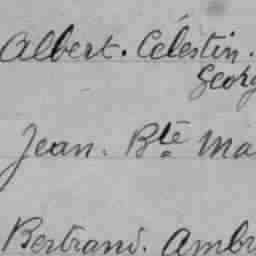 Albert. Célestin.
Georg
Jean. Bte Ma
Bertrand. Ambr